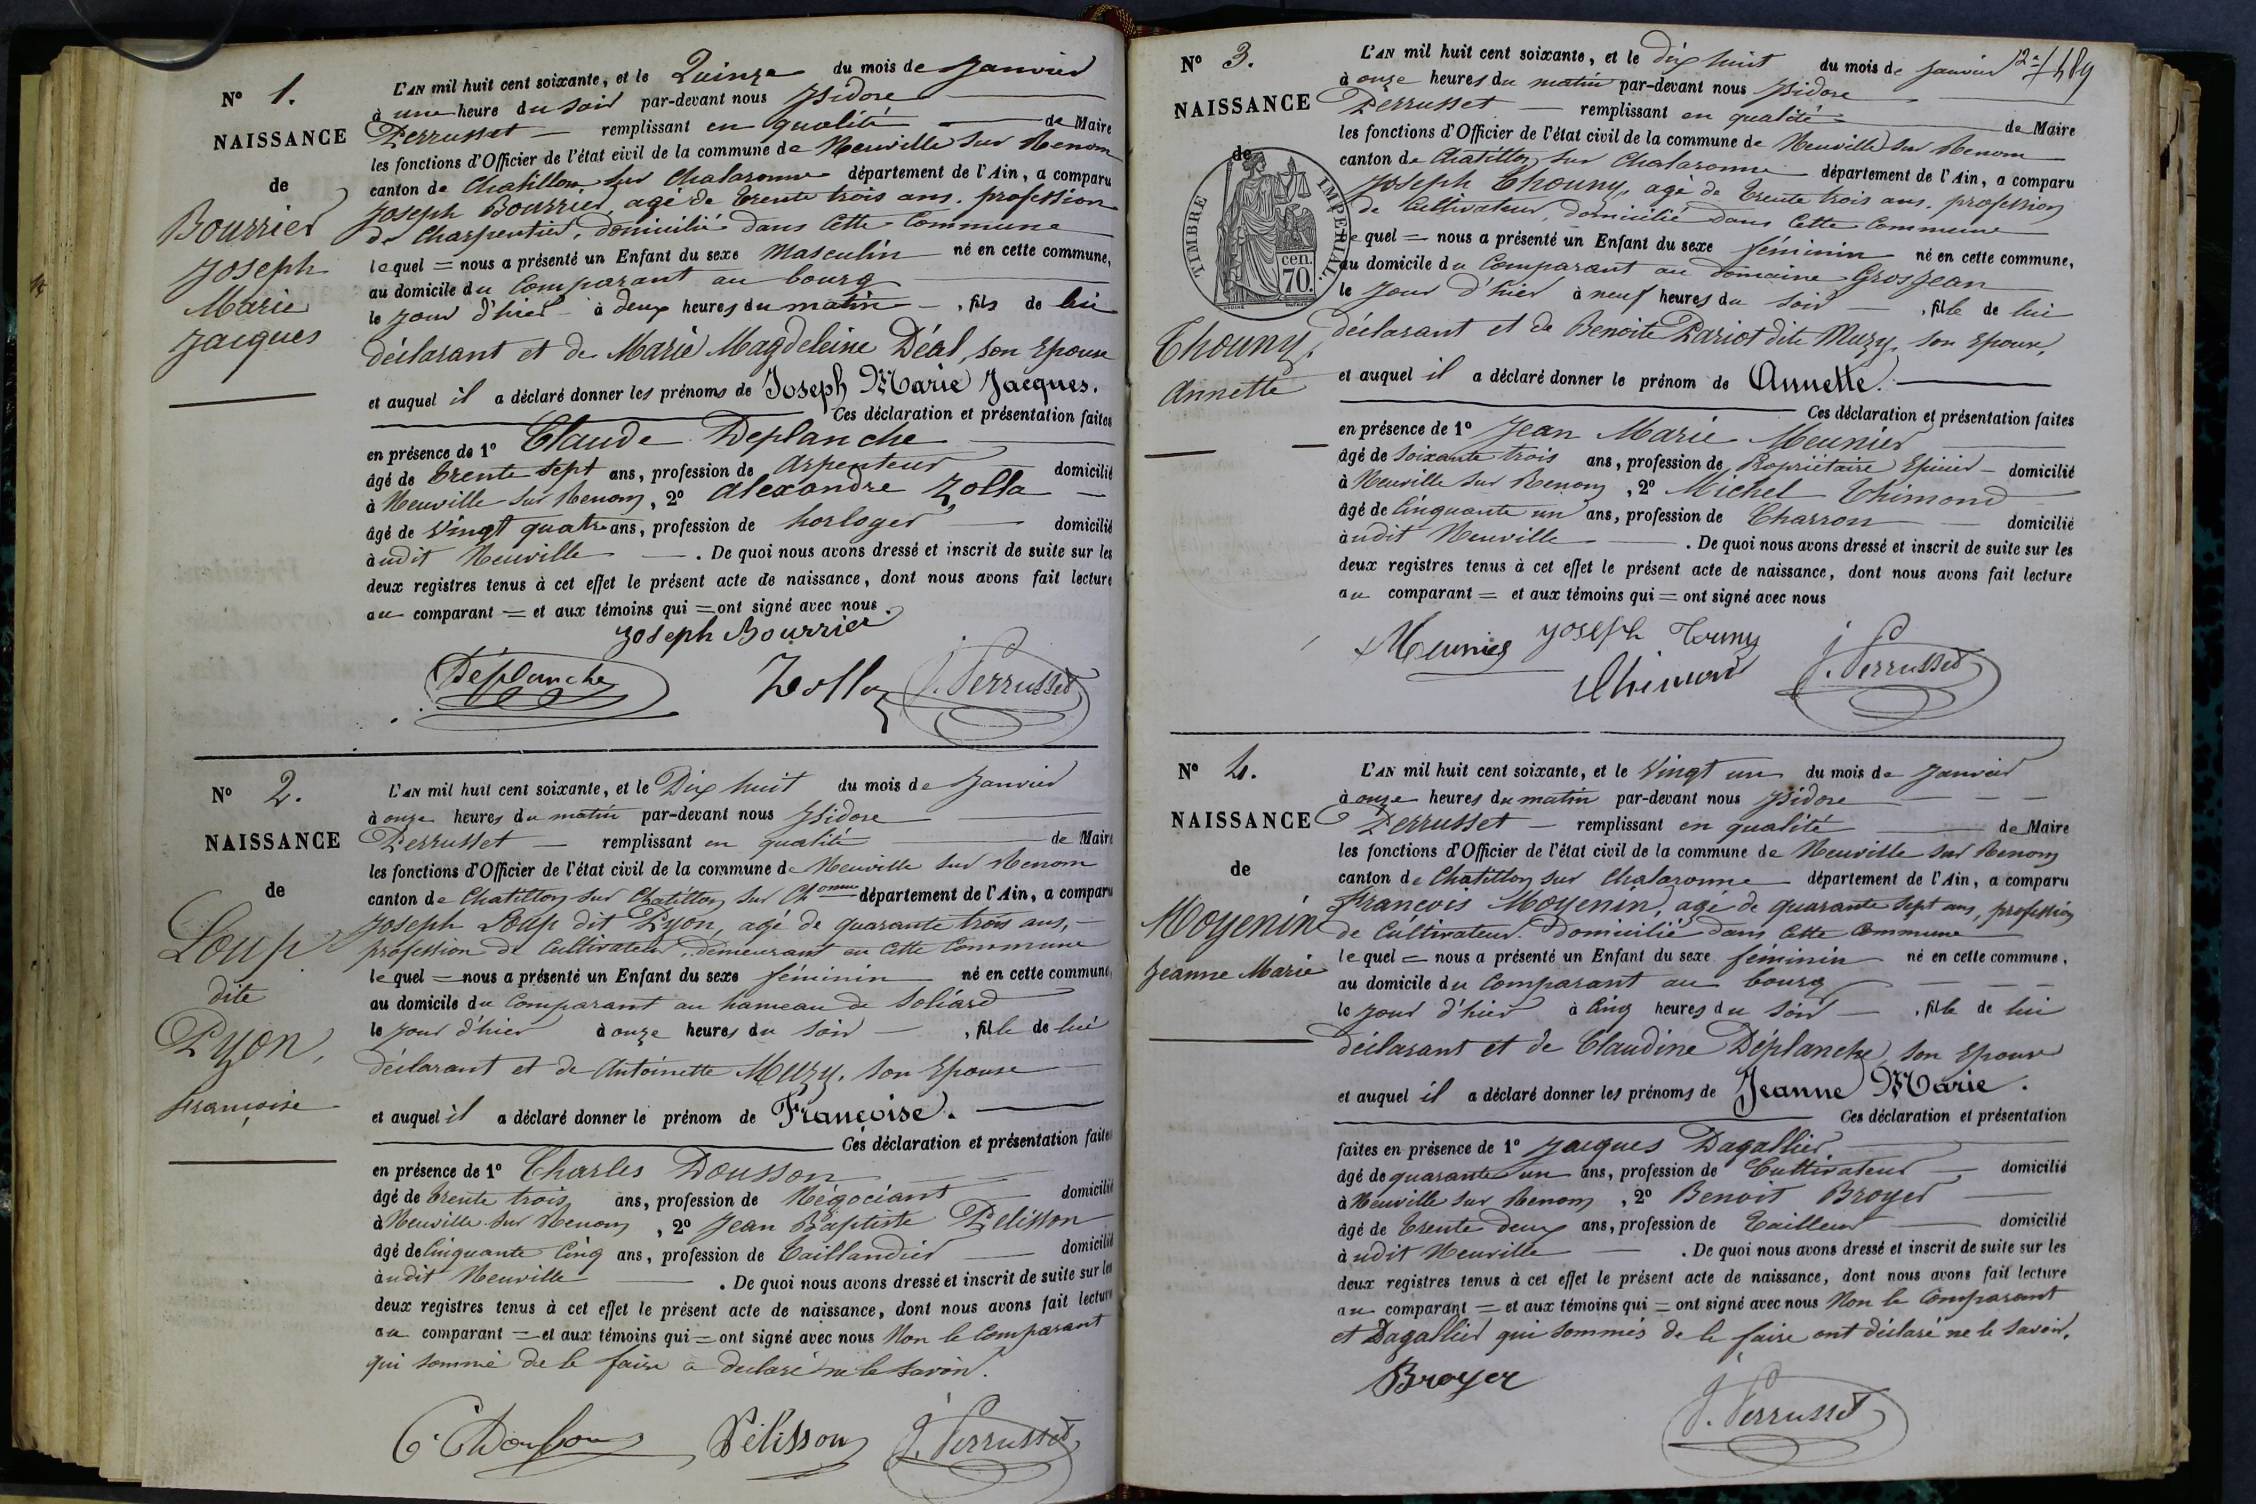 N° 1.
NAISSANCE
de
Bourrier
Joseph
Marie
Jacques
L'AN mil huit cent soixante, et le Quinze du mois de Janvier
à une heure du soir par-devant nous Isidore
Perrusset remplissant en qualité de Maire
les fonctions d'Officier de l'état civil de la commune de Neuville sur Renom
canton de Chatillon sur Chalaronne département de l'Ain, a comparu
Joseph Bourrier, agé de trente trois ans, profession
de Charpentier, domicilié dans cette Commune
lequel = nous a présenté un Enfant du sexe Masculin né en cette commune,
au domicile du Comparant au bourg
le jour d'hier à deux heures du matin, fils de lui
déclarant et de Marie Magdeleine Déal, son Epouse
et auquel il a déclaré donner les prénoms de Joseph Marie Jacques.
Ces déclaration et présentation faites
en présence de 1° Claude Deplanche
âgé de trente sept ans, profession de Arpenteur domicilié
à Neuville sur Renom, 2° Alexandre Zolla
âgé de vingt quatre ans, profession de horloger domicilié
àudit Neuville. De quoi nous avons dressé et inscrit de suite sur les
deux registres tenus à cet effet le présent acte de naissance, dont nous avons fait lecture
au comparant = et aux témoins qui = ont signé avec nous.
Joseph Bourrier
Déplanche Zolla J. Perrusset
N° 2.
NAISSANCE
de
Loup
dite
Pyon,
françoise
L'AN mil huit cent soixante, et le Dix huit du mois de Janvier
à onze heures du matin par-devant nous Isidore
Perrusset remplissant en qualité de Maire
les fonctions d'Officier de l'état civil de la commune de Neuville sur Renom
canton de Chatillon sur Chatillon sur Ch onne département de l'Ain, a comparu
Joseph Loup dit Pyon, agé de quarante trois ans,
profession de Cultivateur, demeurant en Cette Commune
lequel = nous a présenté un Enfant du sexe féminin né en cette commune,
au domicile du Comparant au hameau de Soliard
le jour d'hier à onze heures du soir, fille de lui
déclarant et de Antoinette Muzy, son Epouse
et auquel il a déclaré donner le prénom de Françoise.
Ces déclaration et présentation faites
en présence de 1° Charles Dousson
âgé de trente trois ans, profession de Négociant domicilié
à Neuville sur Renom, 2° Jean Baptiste Pelisson
âgé de Cinquante Cinq ans, profession de Taillandier domicilié
àudit Neuville. De quoi nous avons dressé et inscrit de suite sur les
deux registres tenus à cet effet le présent acte de naissance, dont nous avons fait lecture
au comparant = et aux témoins qui = ont signé avec nous Non le Comparant
qui sommé de le faire a déclaré ne le savoir.
C. Dousson Pélisson J. Perrusset
N° 3.
NAISSANCE
de
TIMBRE IMPERIAL.
cen.
70.
Thouny,
Annette
L'AN mil huit cent soixante, et le dix huit du mois de Janvier
à onze heures du matin par-devant nous Isidore
Perrusset remplissant en qualité de Maire
les fonctions d'Officier de l'état civil de la commune de Neuville sur Renom
canton de Chatillon sur Chalaronne département de l'Ain, a comparu
Joseph Thouny, agé de trente trois ans, profession
de Cultivateur, domicilié dans Cette Commune
lequel = nous a présenté un Enfant du sexe féminin né en cette commune,
au domicile du Comparant au domaine GrosJean
le jour d'hier à neuf heures du soir, fille de lui
déclarant et de Benoite Pariot dite Muzy, son Epouse,
et auquel il a déclaré donner le prénom de Annette.
Ces déclaration et présentation faites
en présence de 1° Jean Marie Meunier
âgé de soixante trois ans, profession de Propriétaire Epicier domicilié
à Neuville sur Renom, 2° Michel Thimond
âgé de Cinquante un ans, profession de Charron domicilié
àudit Neuville. De quoi nous avons dressé et inscrit de suite sur les
deux registres tenus à cet effet le présent acte de naissance, dont nous avons fait lecture
au comparant = et aux témoins qui = ont signé avec nous
Meunier Joseph Touny
Thimond J. Perrusset
N° 4.
NAISSANCE
de
Moyenin
Jeanne Marie
L'AN mil huit cent soixante, et le vingt un du mois de Janvier
à onze heures du matin par-devant nous Isidore
Perrusset remplissant en qualité de Maire
les fonctions d'Officier de l'état civil de la commune de Neuville sur Renom
canton de Chatillon sur Chalaronne département de l'Ain, a comparu
François Moyenin, agé de quarante sept ans, profession
de Cultivateur domicilié dans Cette Commune
lequel = nous a présenté un Enfant du sexe féminin né en cette commune,
au domicile du Comparant au bourg
le jour d'hier à Cinq heures du soir, fille de lui
déclarant et de Claudine Déplanche, son Epouse
et auquel il a déclaré donner les prénoms de Jeanne Marie.
Ces déclaration et présentation
faites en présence de 1° Jacques Dagallier
âgé de quarante un ans, profession de Cultivateur domicilié
à Neuville sur Renom, 2° Benoit Broyer
âgé de trente deux ans, profession de Tailleur domicilié
àudit Neuville. De quoi nous avons dressé et inscrit de suite sur les
deux registres tenus à cet effet le présent acte de naissance, dont nous avons fait lecture
au comparant = et aux témoins qui = ont signé avec nous Non le Comparant
et Dagallier qui sommés de le faire ont déclaré ne le savoir.
Broyer J. Perrusset